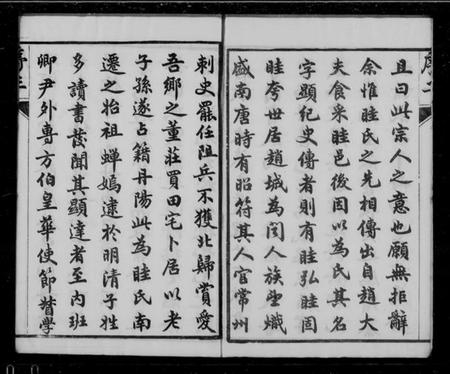 且曰此宗人之意也願無拒辭
余惟眭氏之先相傳出自趙大
夫食采眭邑後因以為氏其名
字顯紀史傳者則有眭弘眭固
眭夸世居趙城為間人族望熾
盛南唐時有昭符其人官常州
序二
刺史罷任阻兵不獲北歸賞愛
吾鄉之董莊買田宅卜居以老
子孫遂占籍丹陽此為眭氏南
遷之始祖蟬嫣逮於明清子姓
多讀書發聞其顯達者至內班
卿尹外專方伯皇華使節督學
序三